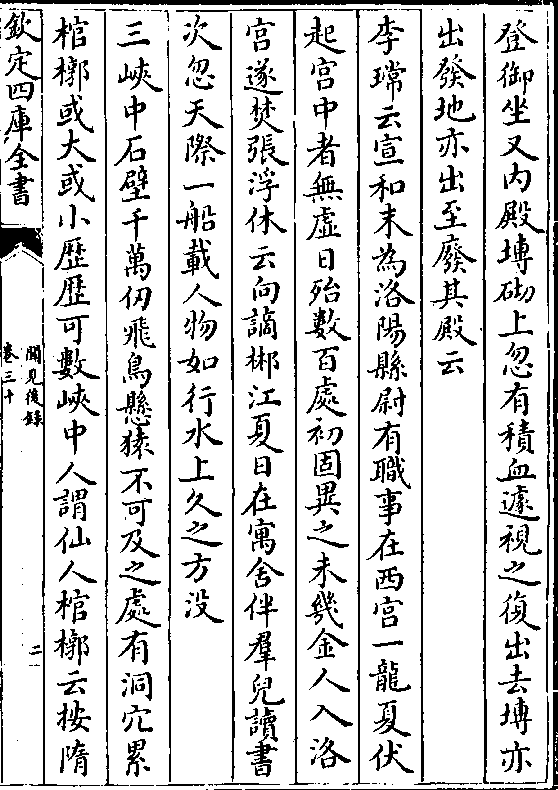 登御坐又内殿塼砌上忽有積血遽視之復出去塼亦
出發地亦出至廢其殿云
李璫云宣和末為洛陽縣尉有職事在西宫一龍夏伏
起宫中者無虚日殆數百處初固異之未幾金人入洛
宫遂焚張浮休云向謫郴江夏日在寓舍伴羣兒讀書
次忽天際一船載人物如行水上久之方没
三峽中石壁千萬仞飛鳥懸猿不可及之處有洞穴累
棺槨或大或小歷歷可數峽中人謂仙人棺槨云按隋
欽定四庫全書
聞見後録
卷三十
二